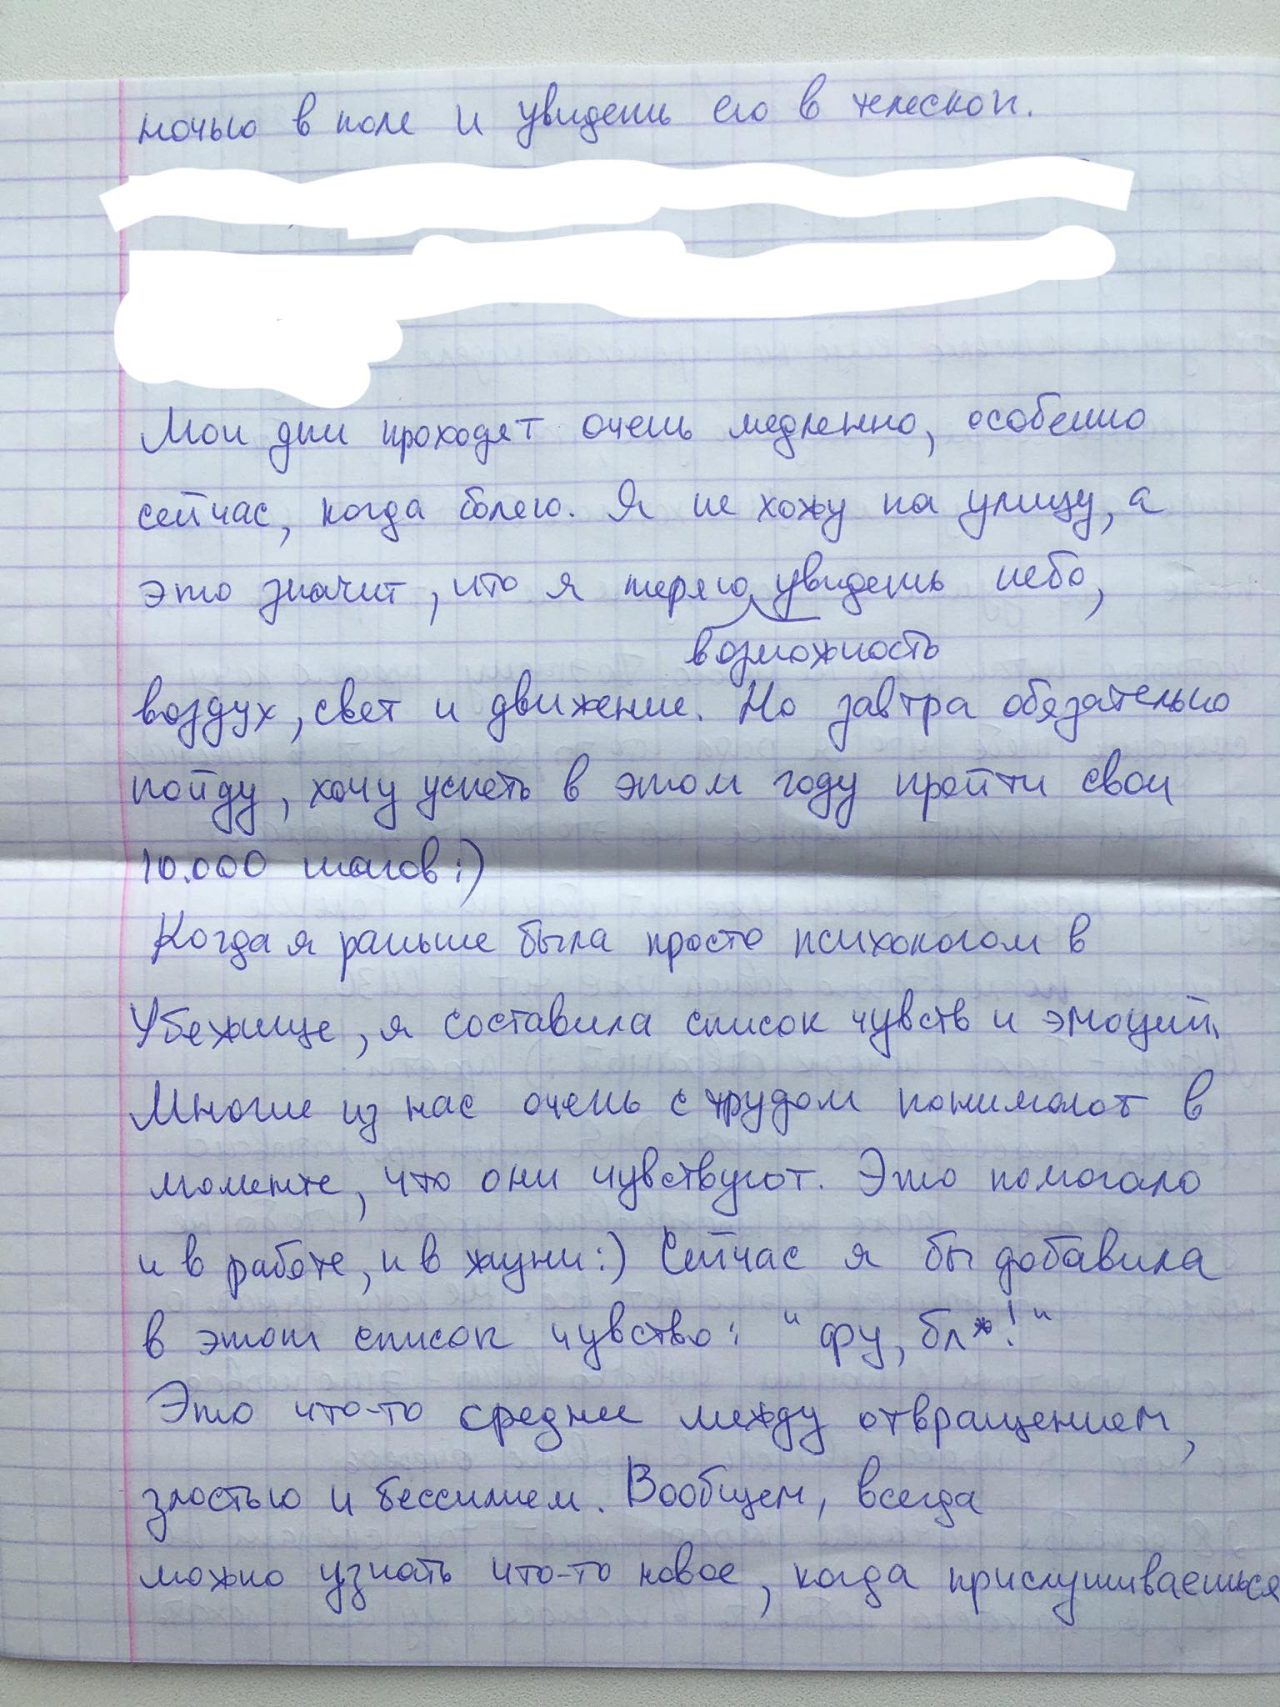 ночью в поле и увидеть его в телескоп.
Мои дни проходят очень медленно, особенно
сейчас, когда болею. Я не хожу на улицу, а
это значит, что я теряю увидеть небо,
возможность
воздух, свет и движение. Но завтра обязательно
пойду, хочу успеть в этом году пройти свои
10.000 шагов:)
Когда я раньше была просто психологом в
Убежище, я составила список чувств и эмоций.
Многие из нас очень с трудом понимают в
моменте, что они чувствуют. Это помогало
и в работе, и в жизни:) Сейчас я бы добавила
в этот список чувство: "фу, бл*!"
Это что-то среднее между отвращением,
злостью и бессилием. Вообщем, всегда
можно узнать что-то новое, когда прислушиваешься